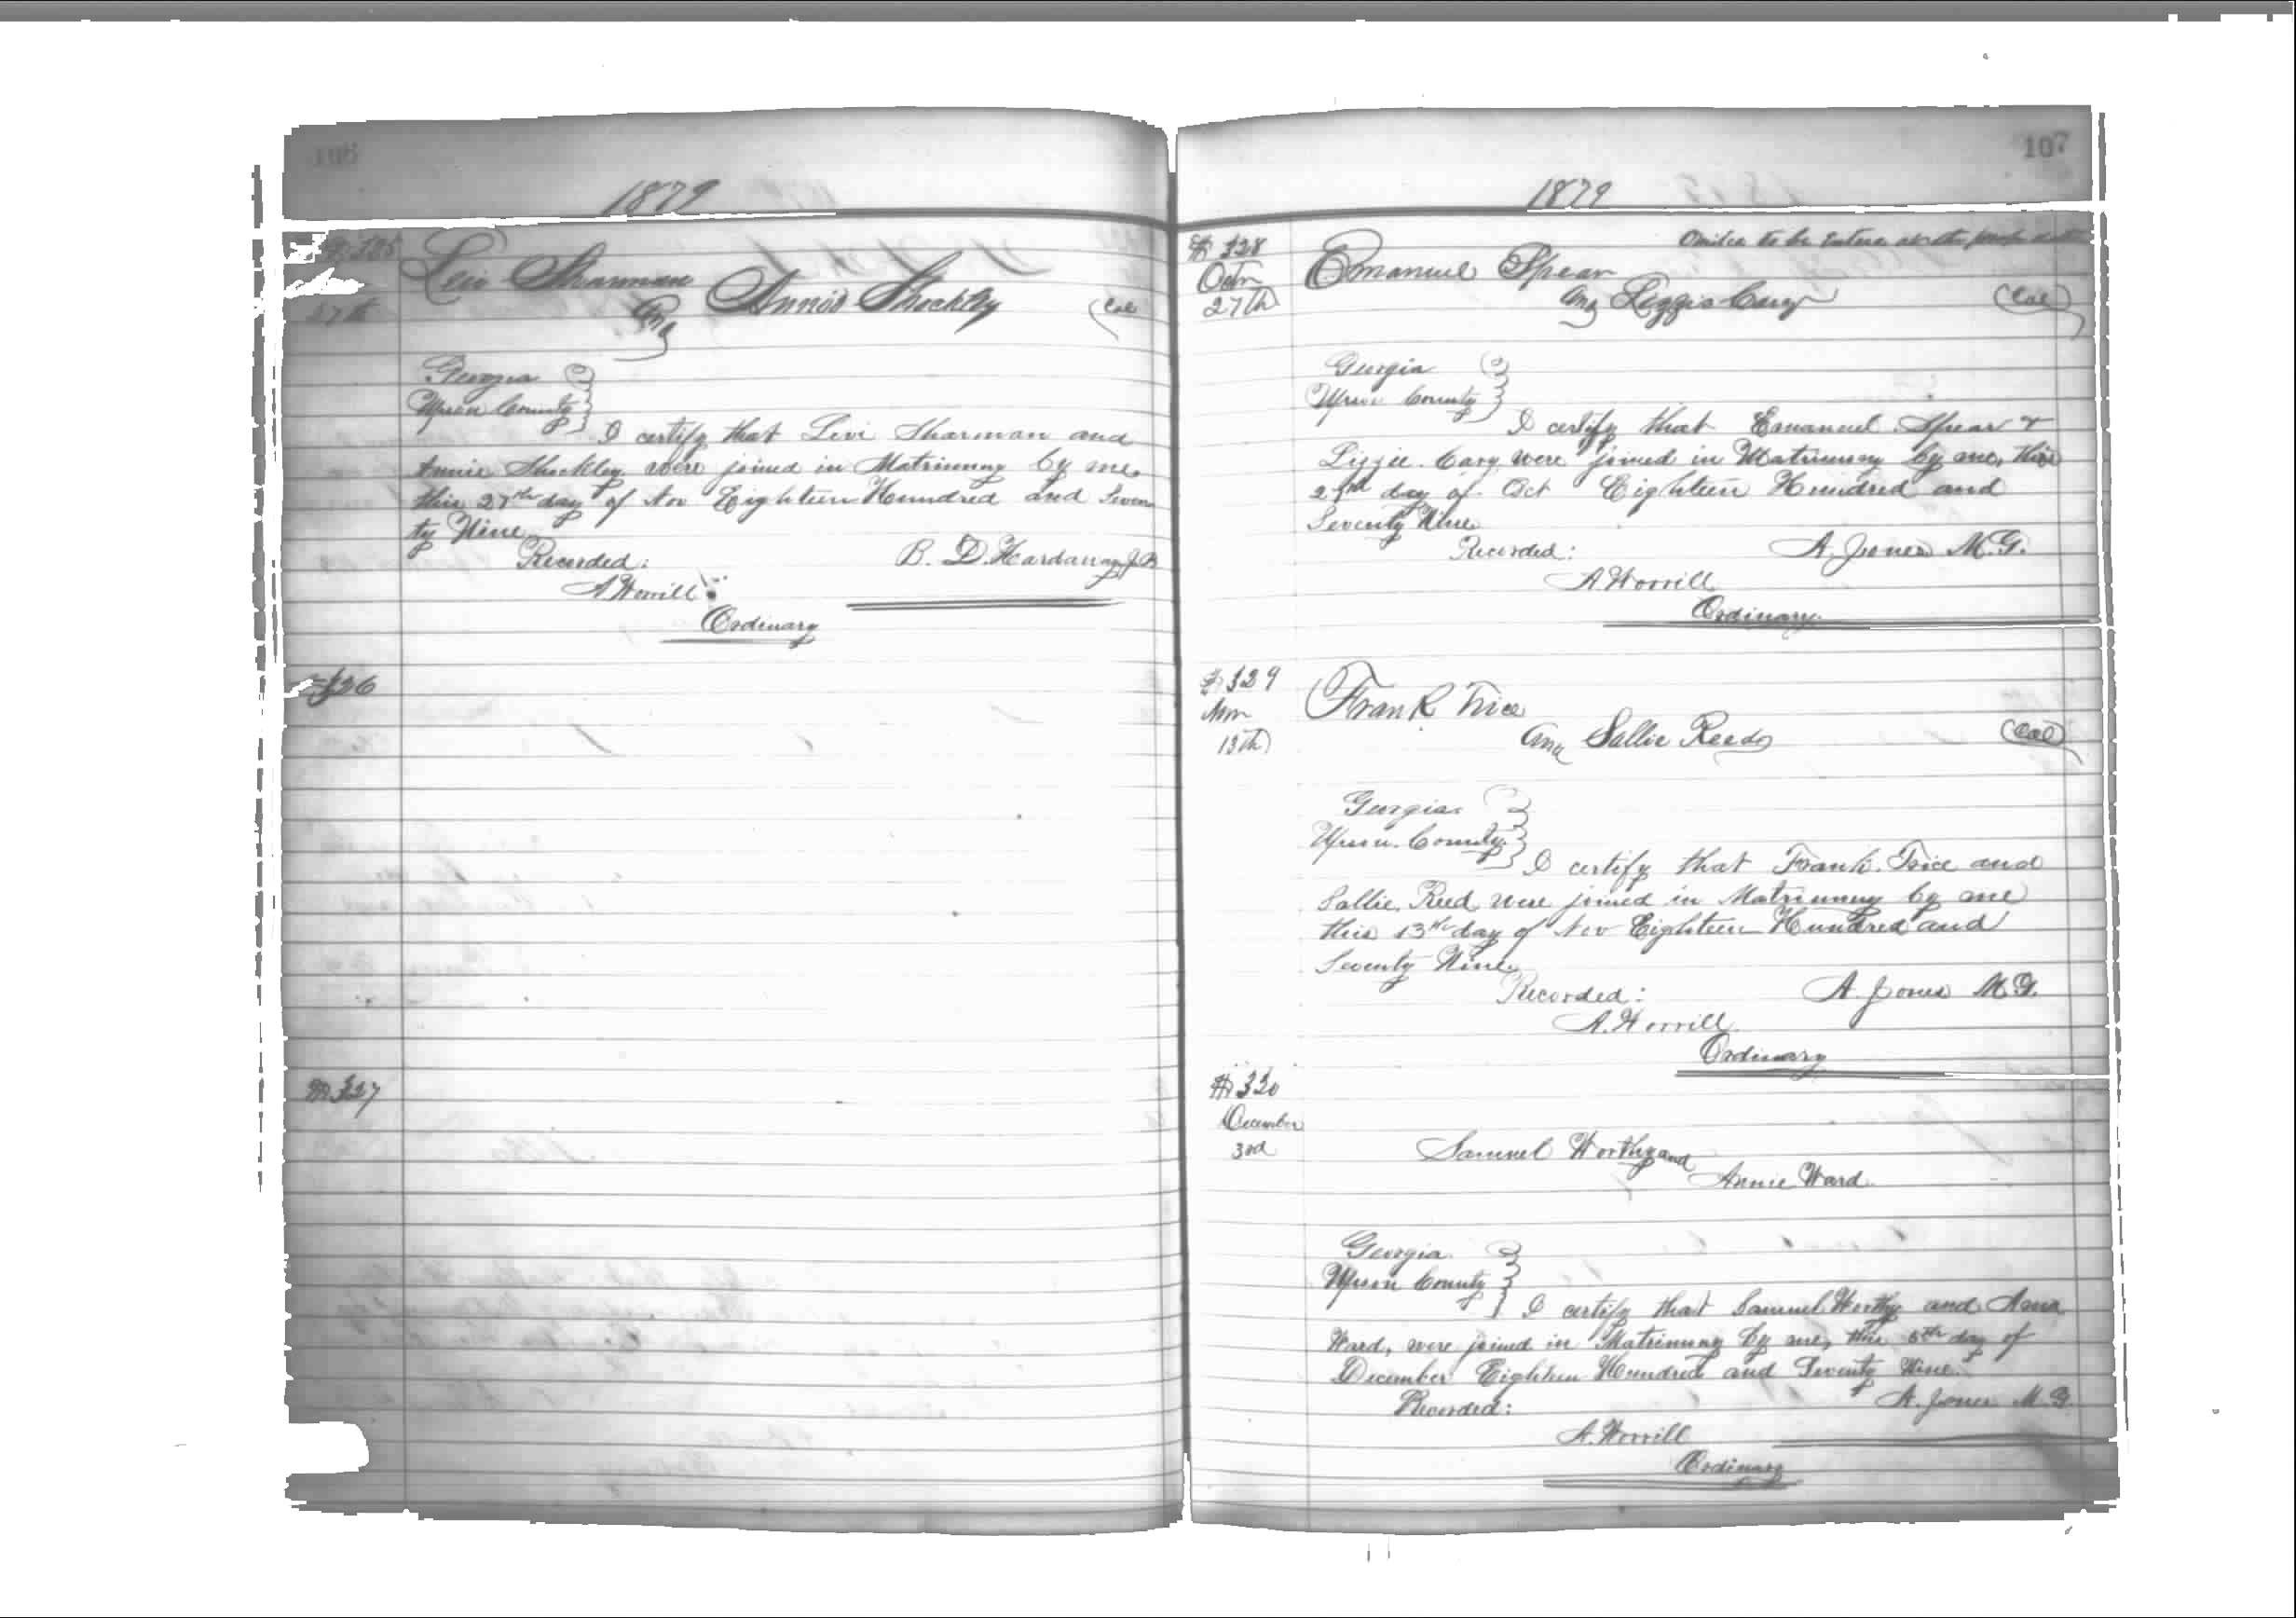 106
1879
# 325
27th
Levi Sharman
and
Annie Shockley
(Col
Georgia
Upson County
I certify that Levi Sharman and
Annie Shockley were joined in Matrimony by me
this 27th day of Nov Eighteen Hundred and Seven
ty Nine
Recorded:
B. D. Hardaway J.P.
A Worrill
Ordinary
326
# 327
107
1879
# 328
Octr
27th
to be entered
Emanuel Spear
and Lizzie Cary
(Col)
Georgia
Upson County
I certify that Emanuel Spear &
Lizzie Cary were joined in Matrimony by me, this
day of Oct Eighteen Hundred and
Seventy Nine
Recorded:
A. Jones M.G.
A. Worrill
Ordinary
# 329
Nov
13th
Frank Trice
and Sallie Reed
(Col)
Georgia
Upson County
I certify that Frank Trice and
Sallie Reed were joined in Matrimony by me
this 13th day of Nov Eighteen Hundred and
Seventy Nine
Recorded:
A. Jones M.G.
A. Worrill
Ordinary
# 330
December
3rd
Samuel Worthy and
Annie Ward
Georgia
Upson County
I certify that Samuel Worthy and Anna
Ward, were joined in Matrimony by me, this day of
December Eighteen Hundred and Seventy Nine
Recorded:
A. Jones M.G.
A. Worrill
Ordinary